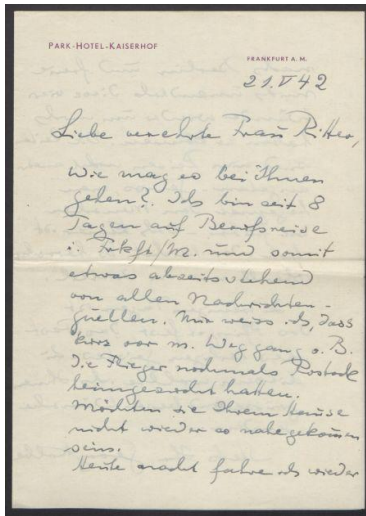 PARK-HOTEL-KAISERHOF
FRANKFURT A. M.
21. V 42
Liebe verehrte Frau Ritter,
Wie mag es bei Ihnen
gehen? Ich bin seit 8
Tagen auf Berufsreise
i. Frkft/M. und somit
etwas abseitsstehend
von allen Nachrichten-
quellen. Nur weiss ich, dass
kurz vor m. Weggang v. B.
die Flieger nochmals Rostock
heimgesucht hatten.
Möchten sie Ihrem Hause
nicht wieder so nahe gekommen
sein.
Heute nacht fahre ich wieder